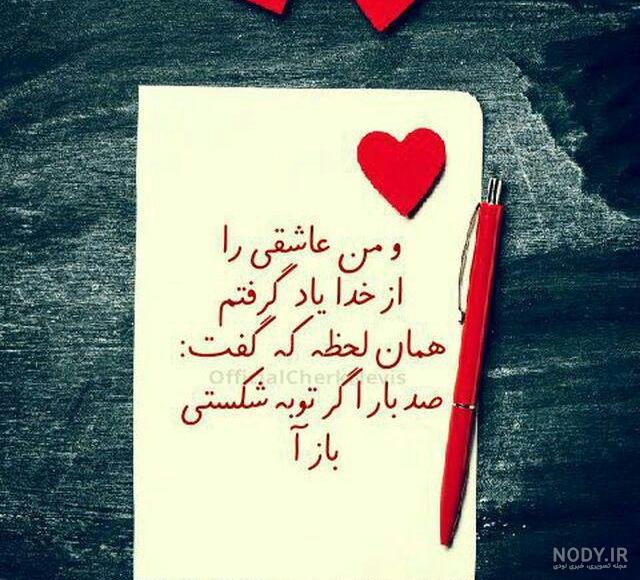 و من عاشقی را
از خدا یاد گرفتم
همان لحظه که گفت:
OfficialCherknevis
صد بار اگر توبه شکستی
باز آ
NODY.IR
مجله تصویری، خبری نودی